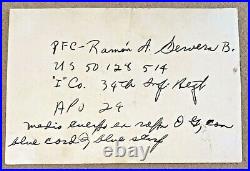 PFC-Ramón A. Servera B.
US 50 128 514
"I" Co. 34th Inf Regt
APO 24
medio cuerpo en ropa O G, con
blue cord y blue scarf